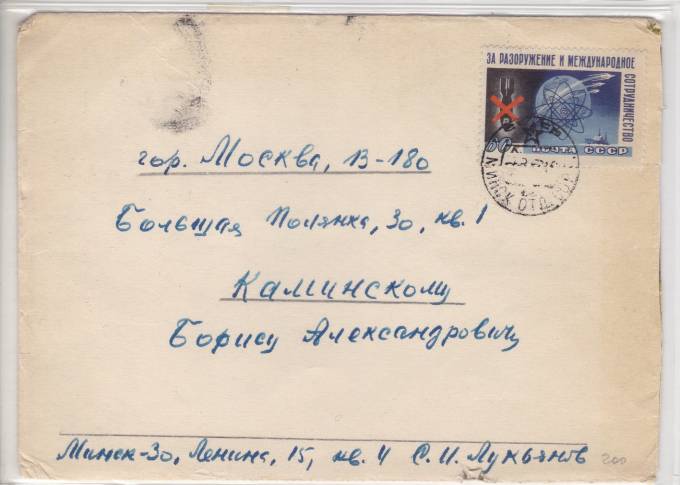 ЗА РАЗОРУЖЕНИЕ И МЕЖДУНАРОДНОЕ
СОТРУДНИЧЕСТВО
60 к. ПОЧТА СССР
МИНСК ОТД.
гор. Москва, В-180
Большая Полянка, 30, кв. 1
Каминскому
Борису Александровичу
Минск-30, Ленина, 15, кв. 4 С. И. Лукьянов
200